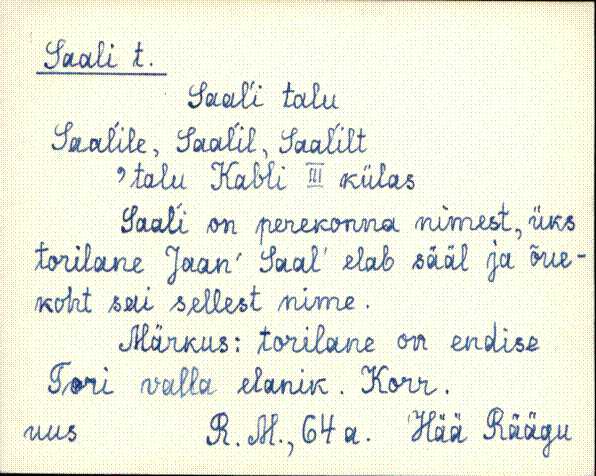 Saali t.
Saal'i talu
Saal'ile, Saal'il, Saal'ilt
, talu Kabli III külas
Saal'i on perekonna nimest, üks
torilane Jaan' Saal' elab sääl ja õue-
koht sai sellest nime.
Märkus: torilane on endise
Tori valla elanik. Korr.
uus R. M., 64 a. Hää Räägu